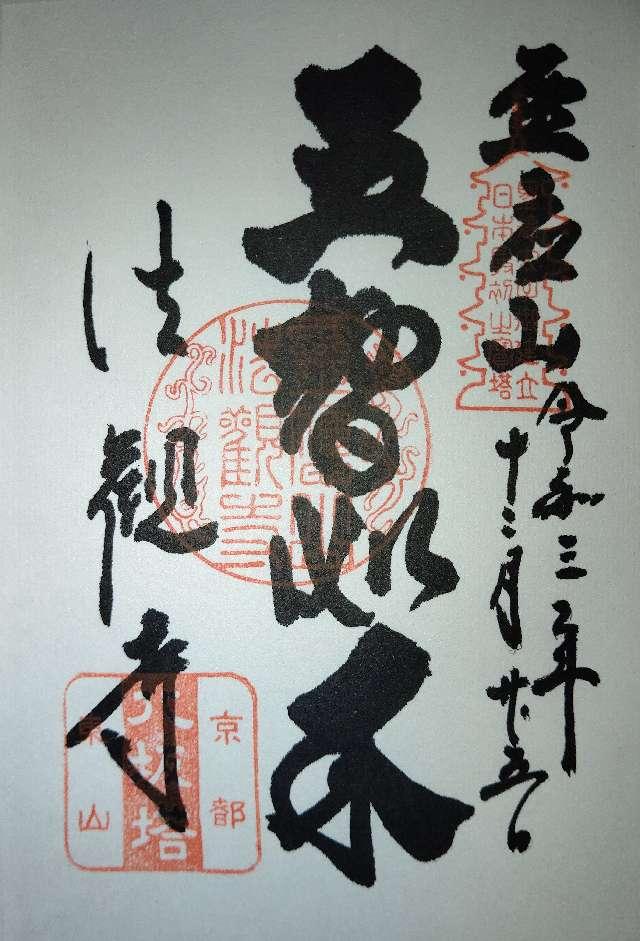 霊応山
令和三年
十二月廿五日
五智如来
法観寺
法觀寺
京都
八坂塔
東山